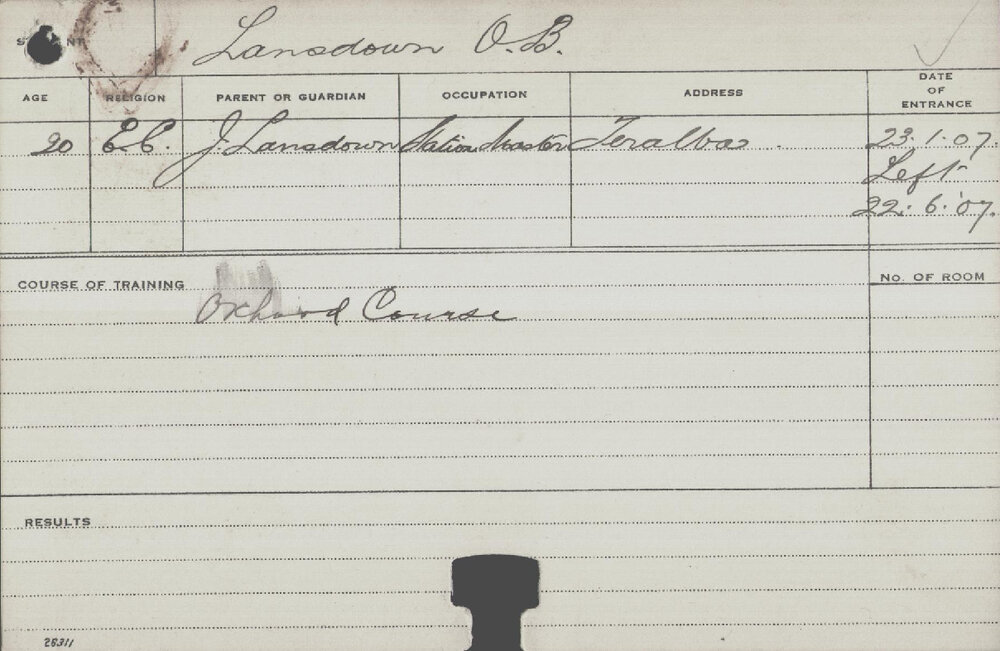 STUDENT Lansdown O.B.
AGE RELIGION PARENT OR GUARDIAN OCCUPATION ADDRESS DATE OF ENTRANCE
20 E.C. J Lansdown Station Master Teralba. 23.1.07.
Left
22.6.'07.
COURSE OF TRAINING No. OF ROOM
Orchard Course
RESULTS
26311